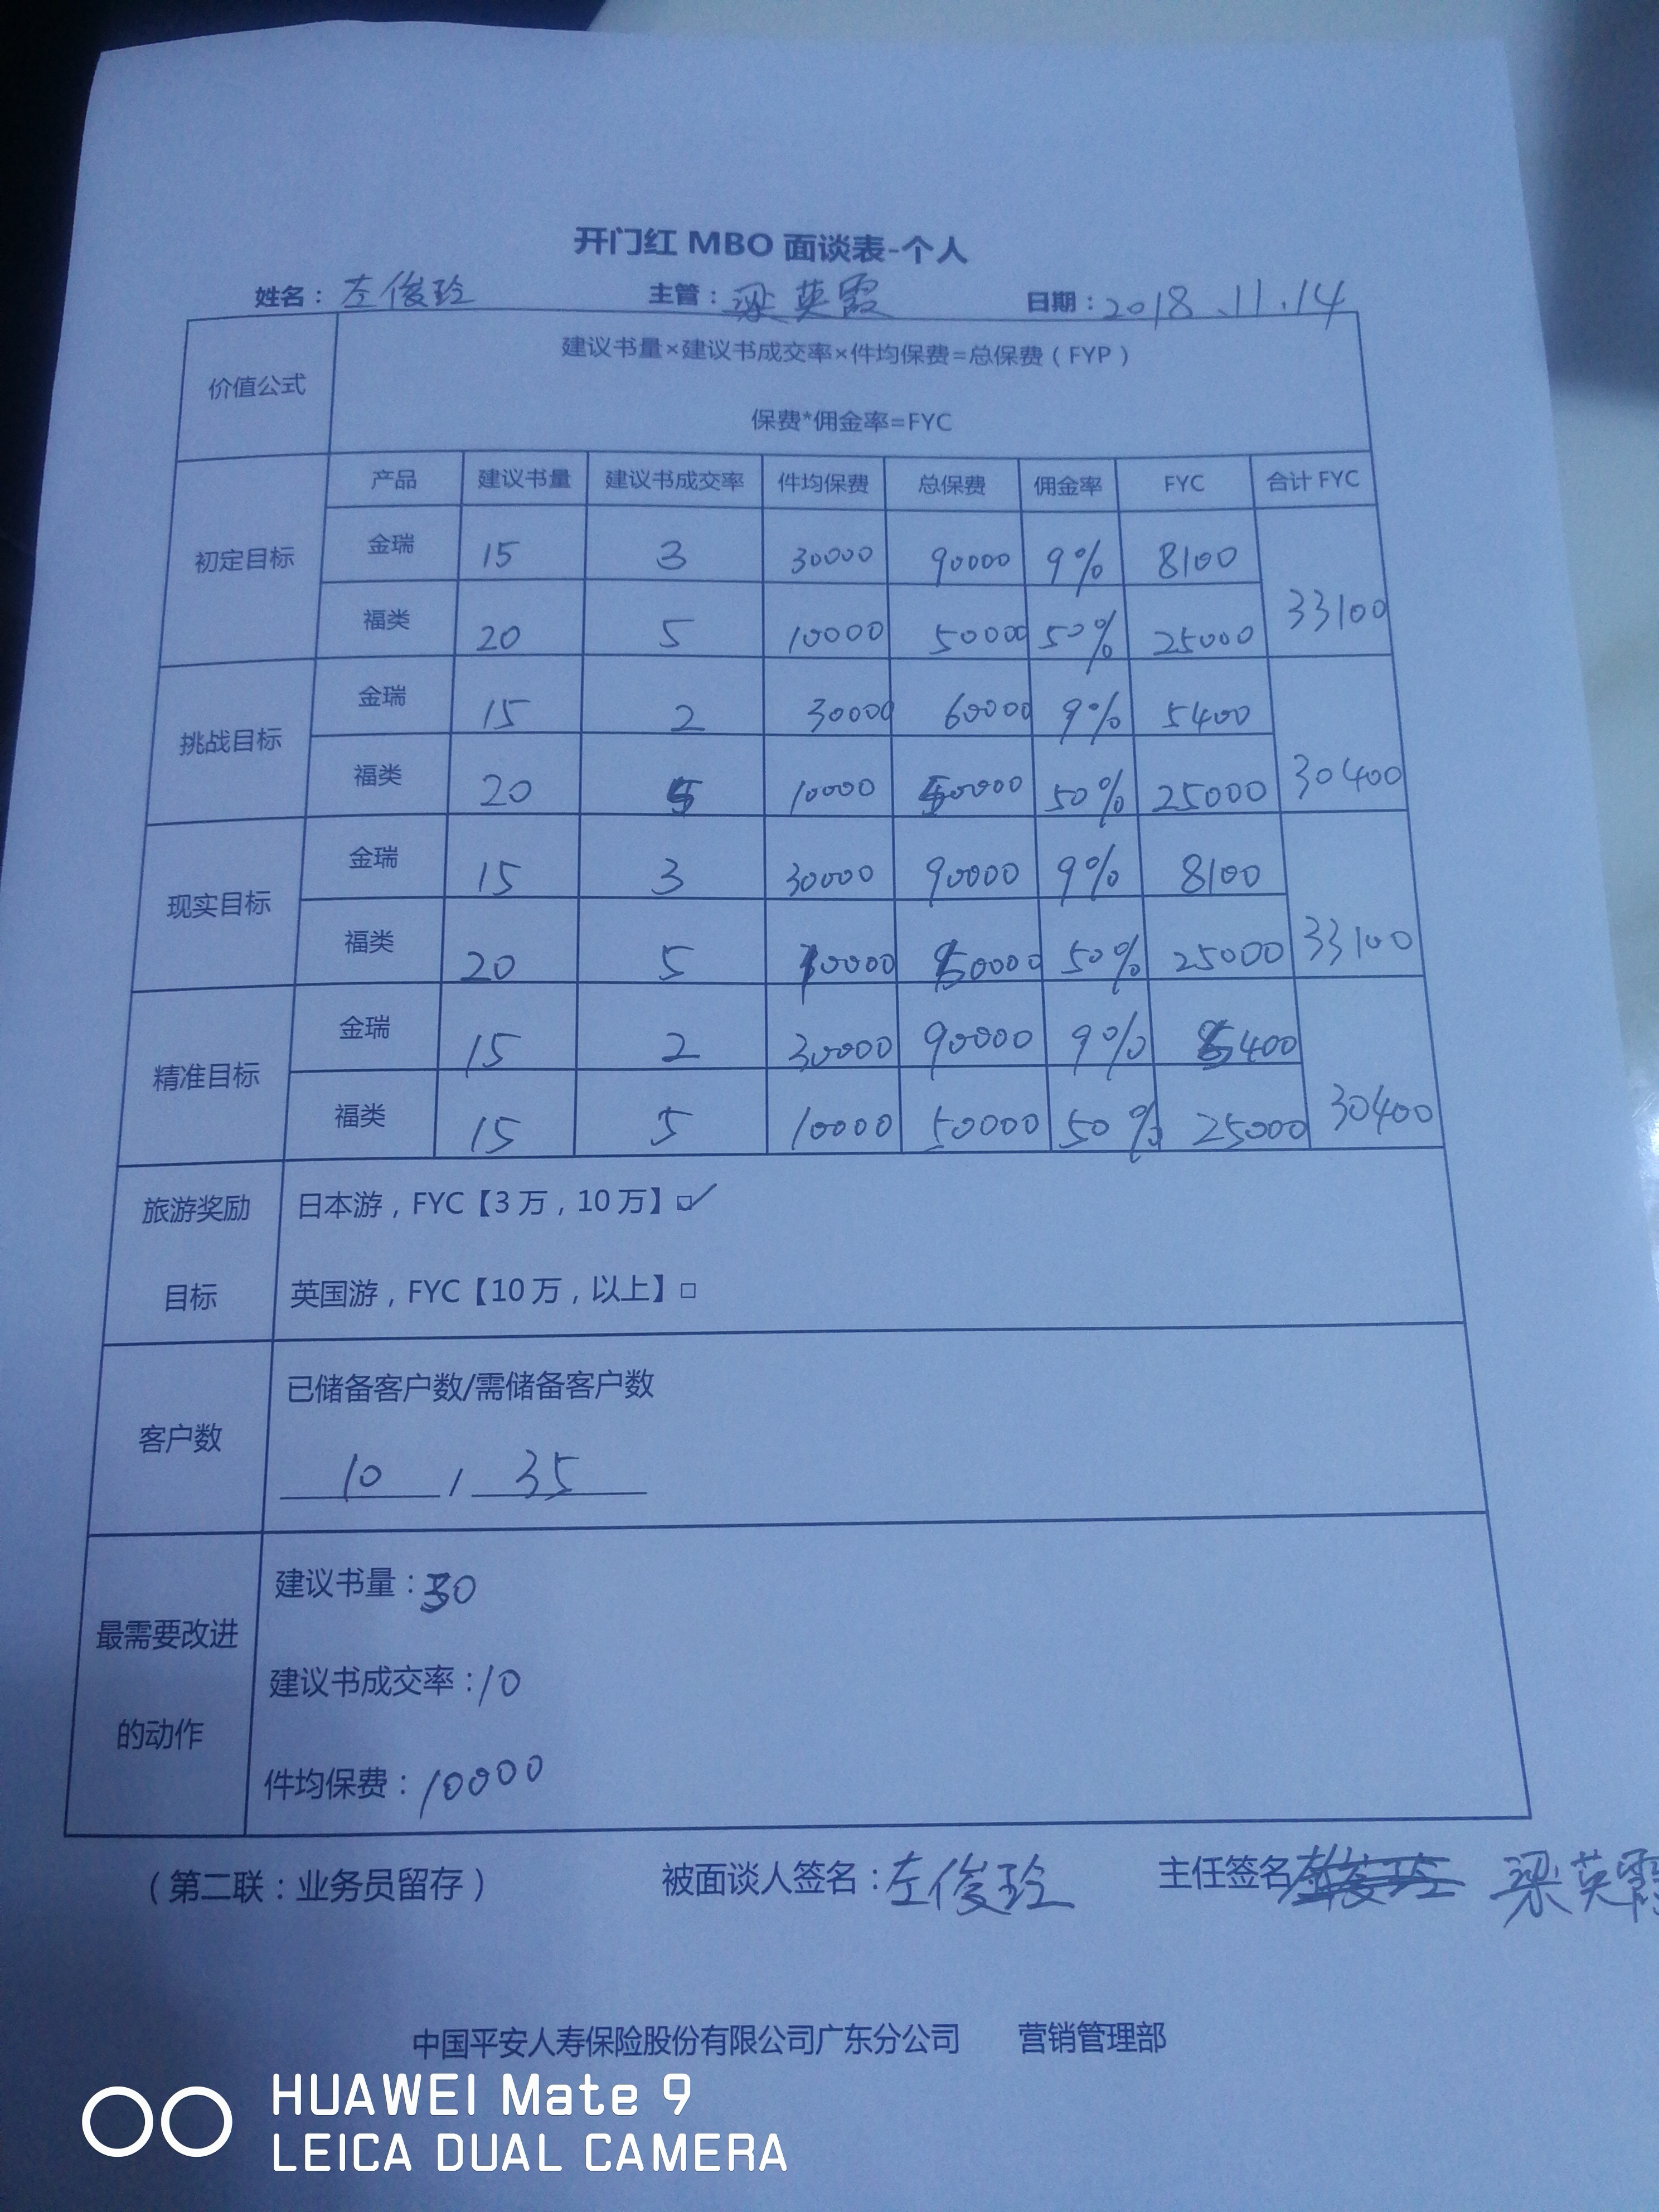 开门红 MBO 面谈表-个人
姓名：左俊玲 主管：梁英霞 日期：2018.11.14
价值公式
建议书量×建议书成交率×件均保费=总保费（FYP）
保费*佣金率=FYC
产品 建议书量 建议书成交率 件均保费 总保费 佣金率 FYC 合计 FYC
初定目标
金瑞 15 3 30000 90000 9% 8100
福类 20 5 10000 50000 50% 25000
33100
挑战目标
金瑞 15 2 30000 60000 9% 5400
福类 20 5 10000 50000 50% 25000
30400
现实目标
金瑞 15 3 30000 90000 9% 8100
福类 20 5 10000 50000 50% 25000
33100
精准目标
金瑞 15 2 30000 90000 9% 5400
福类 15 5 10000 50000 50% 25000
30400
旅游奖励
目标
日本游，FYC【3 万，10 万】□✓
英国游，FYC【10 万，以上】□
客户数
已储备客户数/需储备客户数
10 / 35
最需要改进
的动作
建议书量：30
建议书成交率：10
件均保费：10000
（第二联：业务员留存） 被面谈人签名：左俊玲 主任签名 梁英霞
中国平安人寿保险股份有限公司广东分公司 营销管理部
HUAWEI Mate 9
LEICA DUAL CAMERA